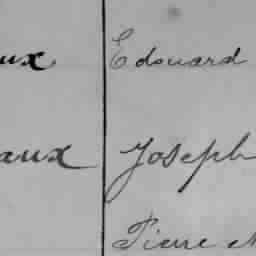 ux Edouard
aux Joseph
Pierre